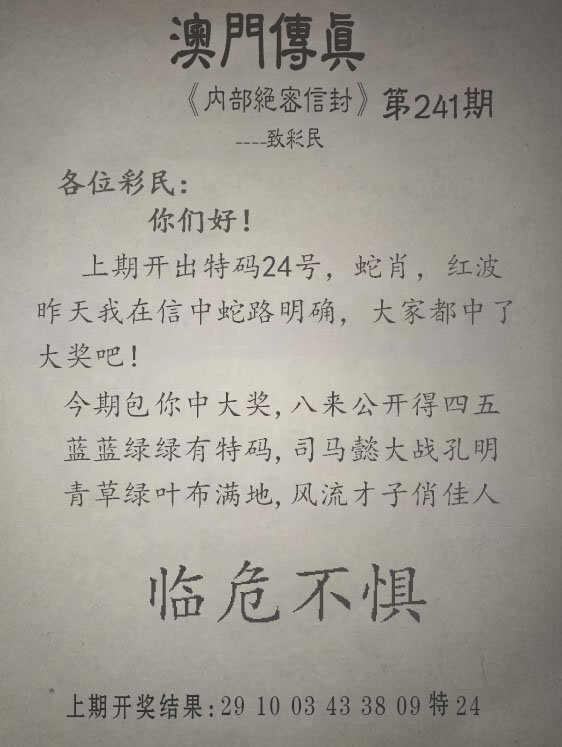 澳門傳眞
《内部絕密信封》第241期
----致彩民
各位彩民：
你们好！
上期开出特码24号，蛇肖，红波
昨天我在信中蛇路明确，大家都中了
大奖吧！
今期包你中大奖,八来公开得四五
蓝蓝绿绿有特码,司马懿大战孔明
青草绿叶布满地,风流才子俏佳人
临危不惧
上期开奖结果:29 10 03 43 38 09 特 24